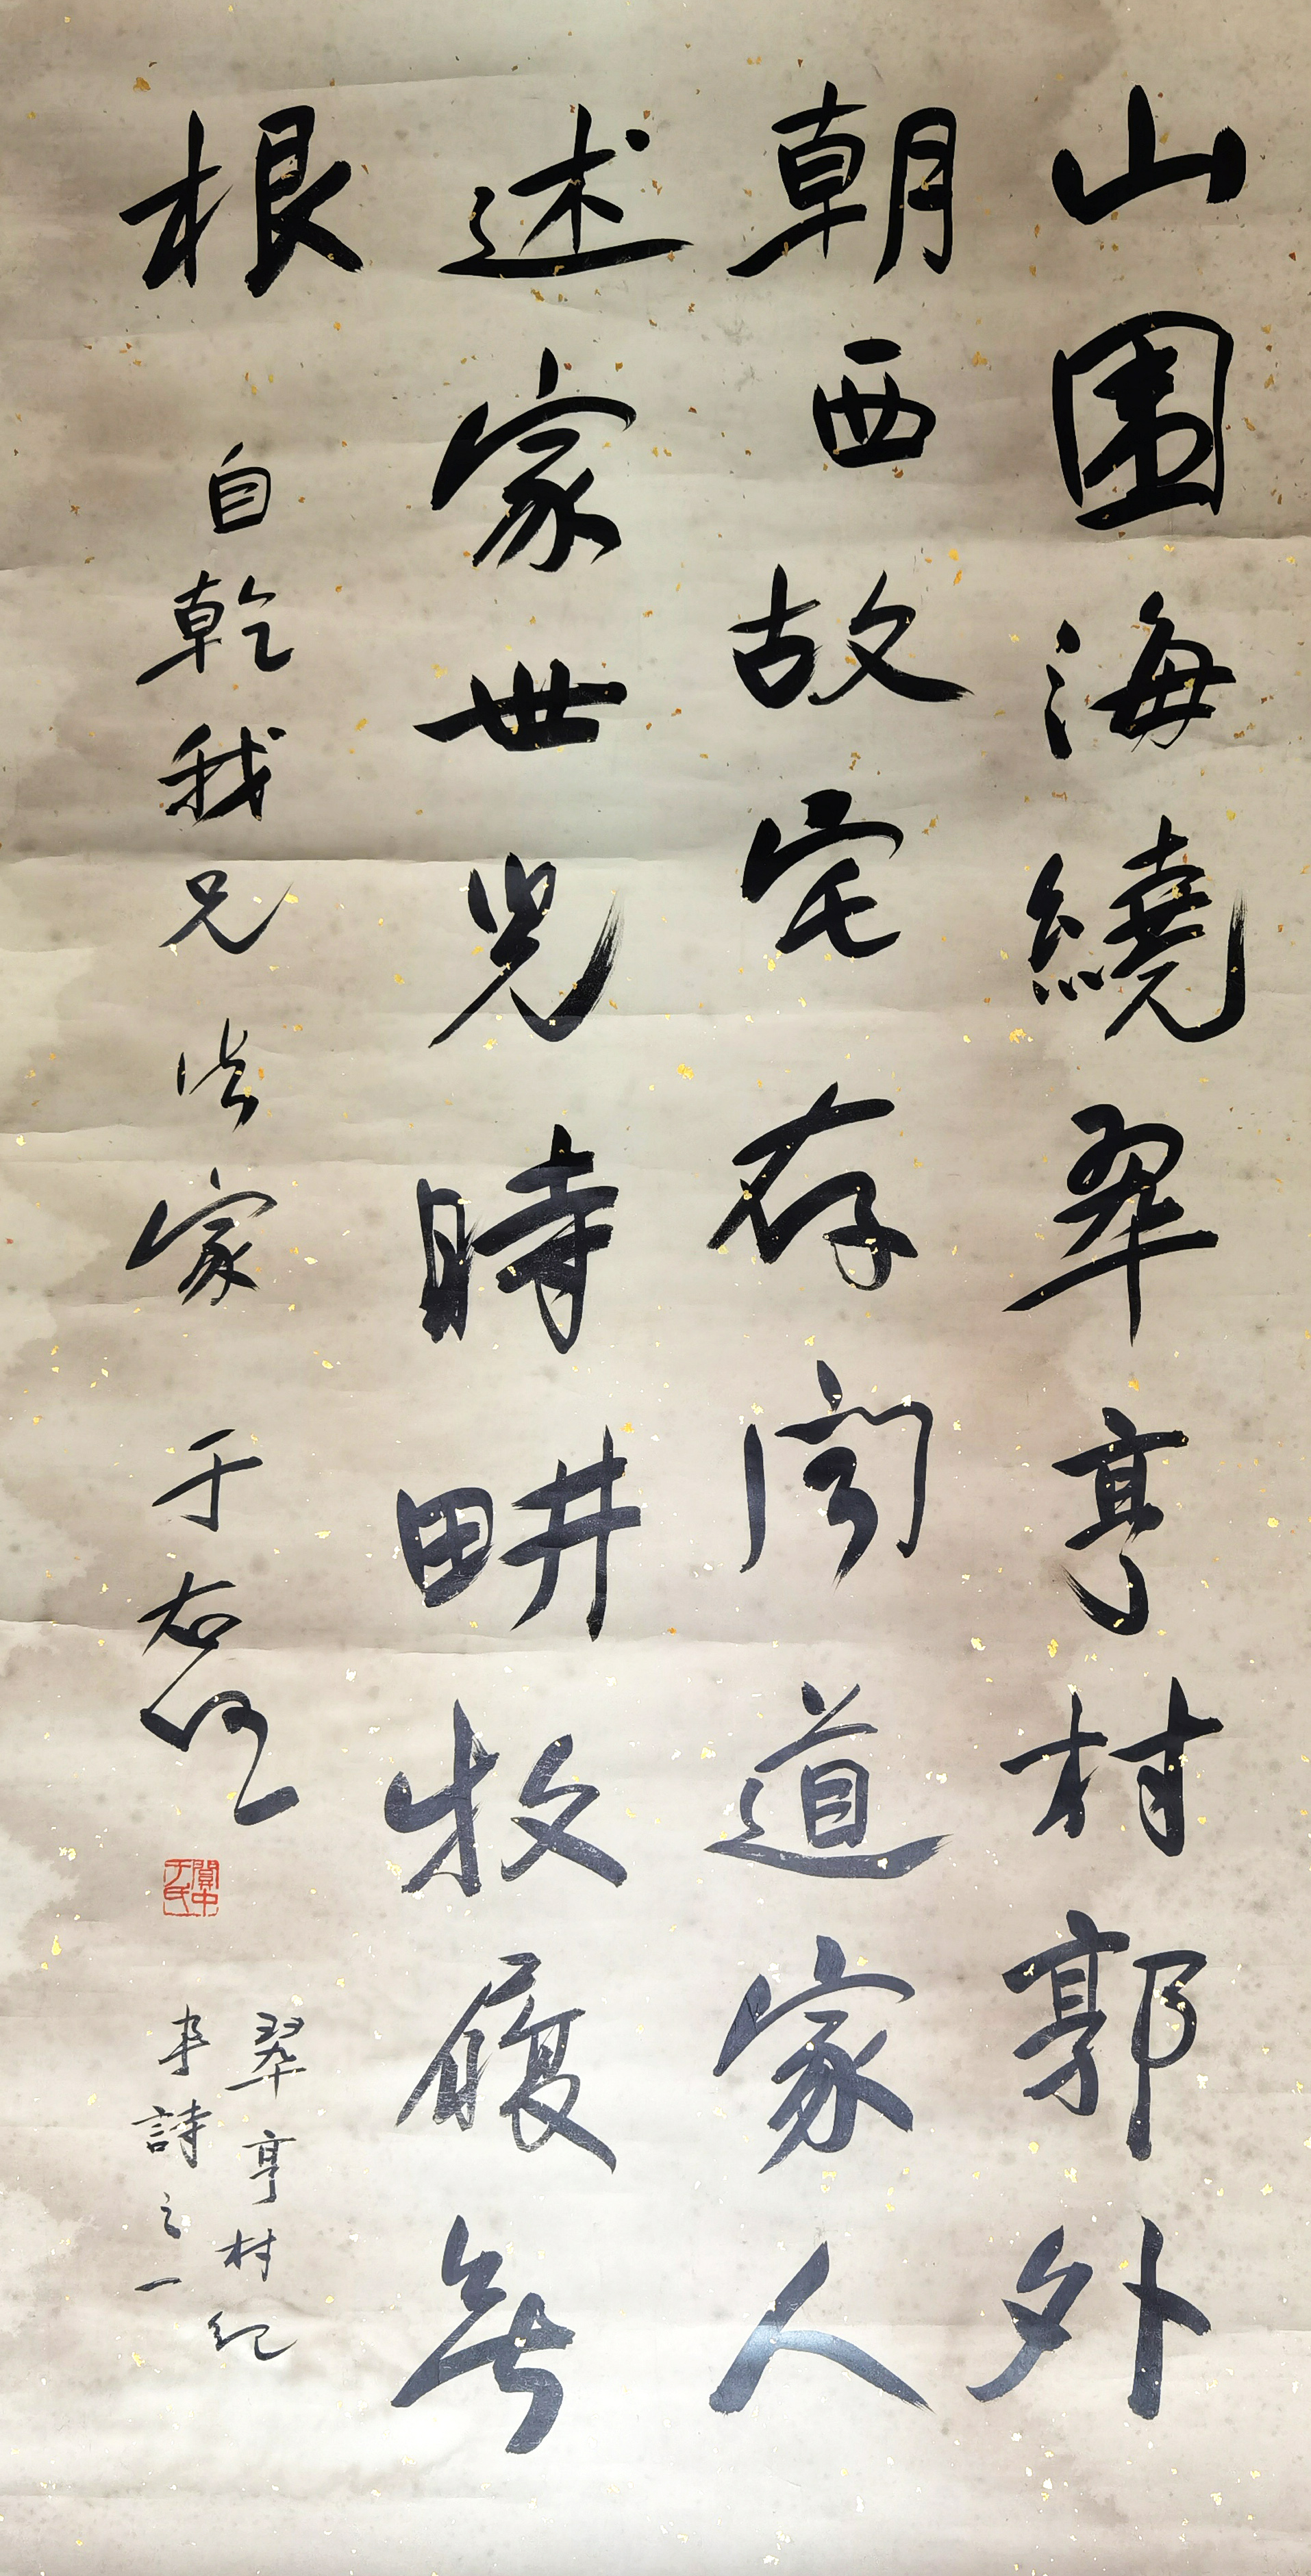 山圍海繞翠亨村郭外
朝西故宅存聞道家人
述家世兒時畊牧履無
根
自乾我兄法家 于右任
關中于氏
翠亨村紀
事詩之一